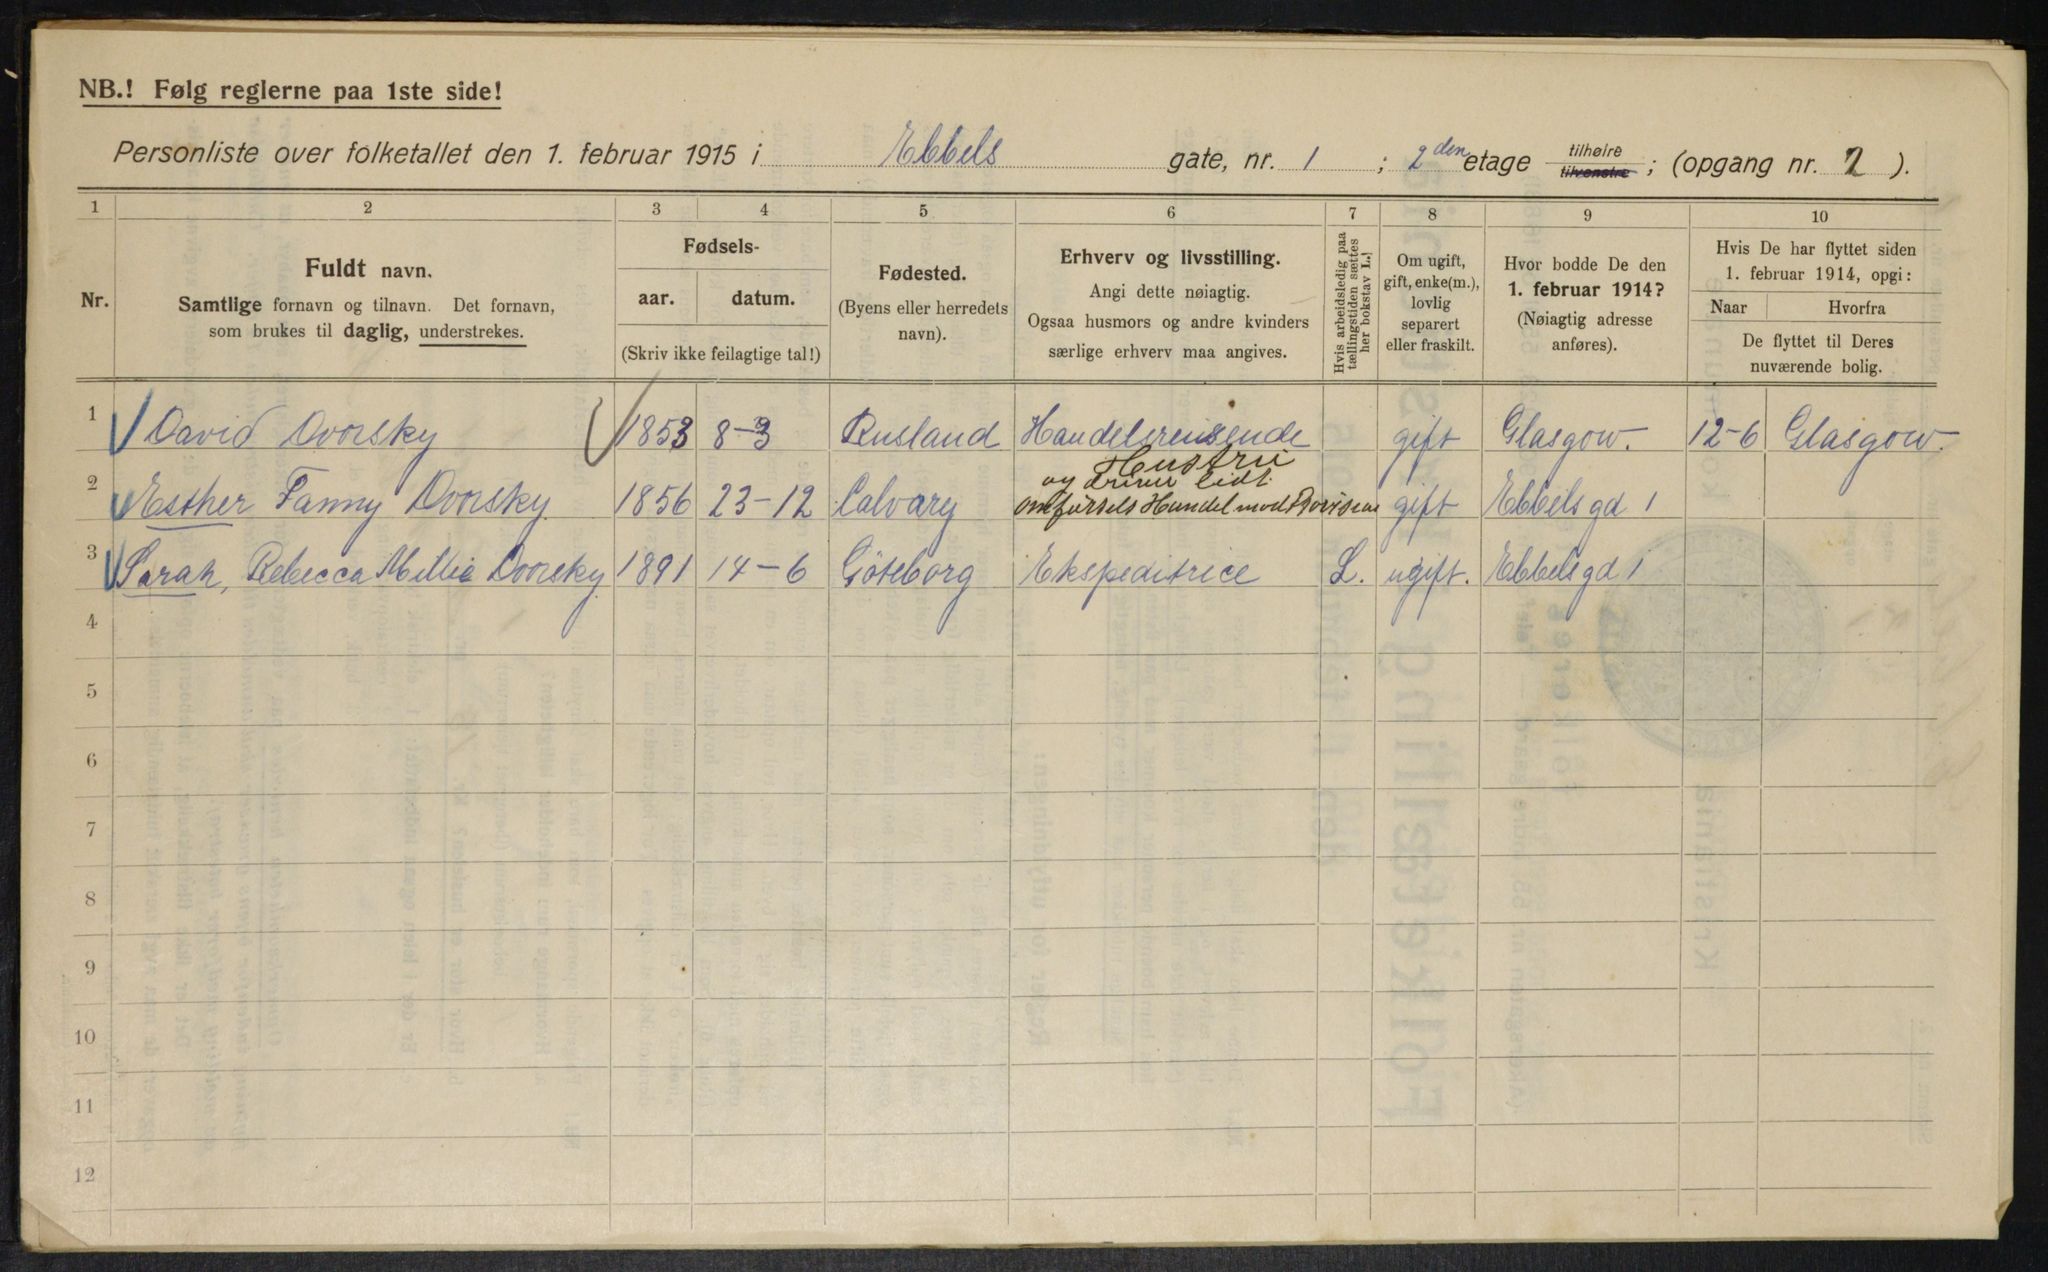 NB.! Følg reglerne paa 1ste side!
Personliste over folketallet den 1. februar 1915 i Ebbels gate, nr. 1 ; 2den etage tilhøire tilvenstre ; (opgang nr. 2 ).
1 2 3 4 5 6 7 8 9 10
Nr.
Fuldt navn.
Samtlige fornavn og tilnavn. Det fornavn,
som brukes til daglig, understrekes.
Fødsels-
aar. datum.
(Skriv ikke feilagtige tal!)
Fødested.
(Byens eller herredets
navn).
Erhverv og livsstilling.
Angi dette nøiagtig.
Ogsaa husmors og andre kvinders
særlige erhverv maa angives.
Hvis arbeidsledig paa
tællingstiden sættes
her bokstav L.)
Om ugift,
gift, enke(m.),
lovlig
separert
eller fraskilt.
Hvor bodde De den
1. februar 1914?
(Nøiagtig adresse
anføres).
Hvis De har flyttet siden
1. februar 1914, opgi:
Naar Hvorfra
De flyttet til Deres
nuværende bolig.
1 David Dvorsky 1853 8-3 Rusland Handelsreisende gift Glasgow. 12-6 Glasgow.
Hustru
og driver lidt
2 Esther Fanny Dvorsky 1856 23-12 Calvary omførsels Handel med gift Ebbels gd 1
3 Sarah, Rebecca Millie Dvorsky 1891 14-6 Göteborg Ekspeditrice L. ugift. Ebbels gd 1
4
5
6
7
8
9
10
11
12